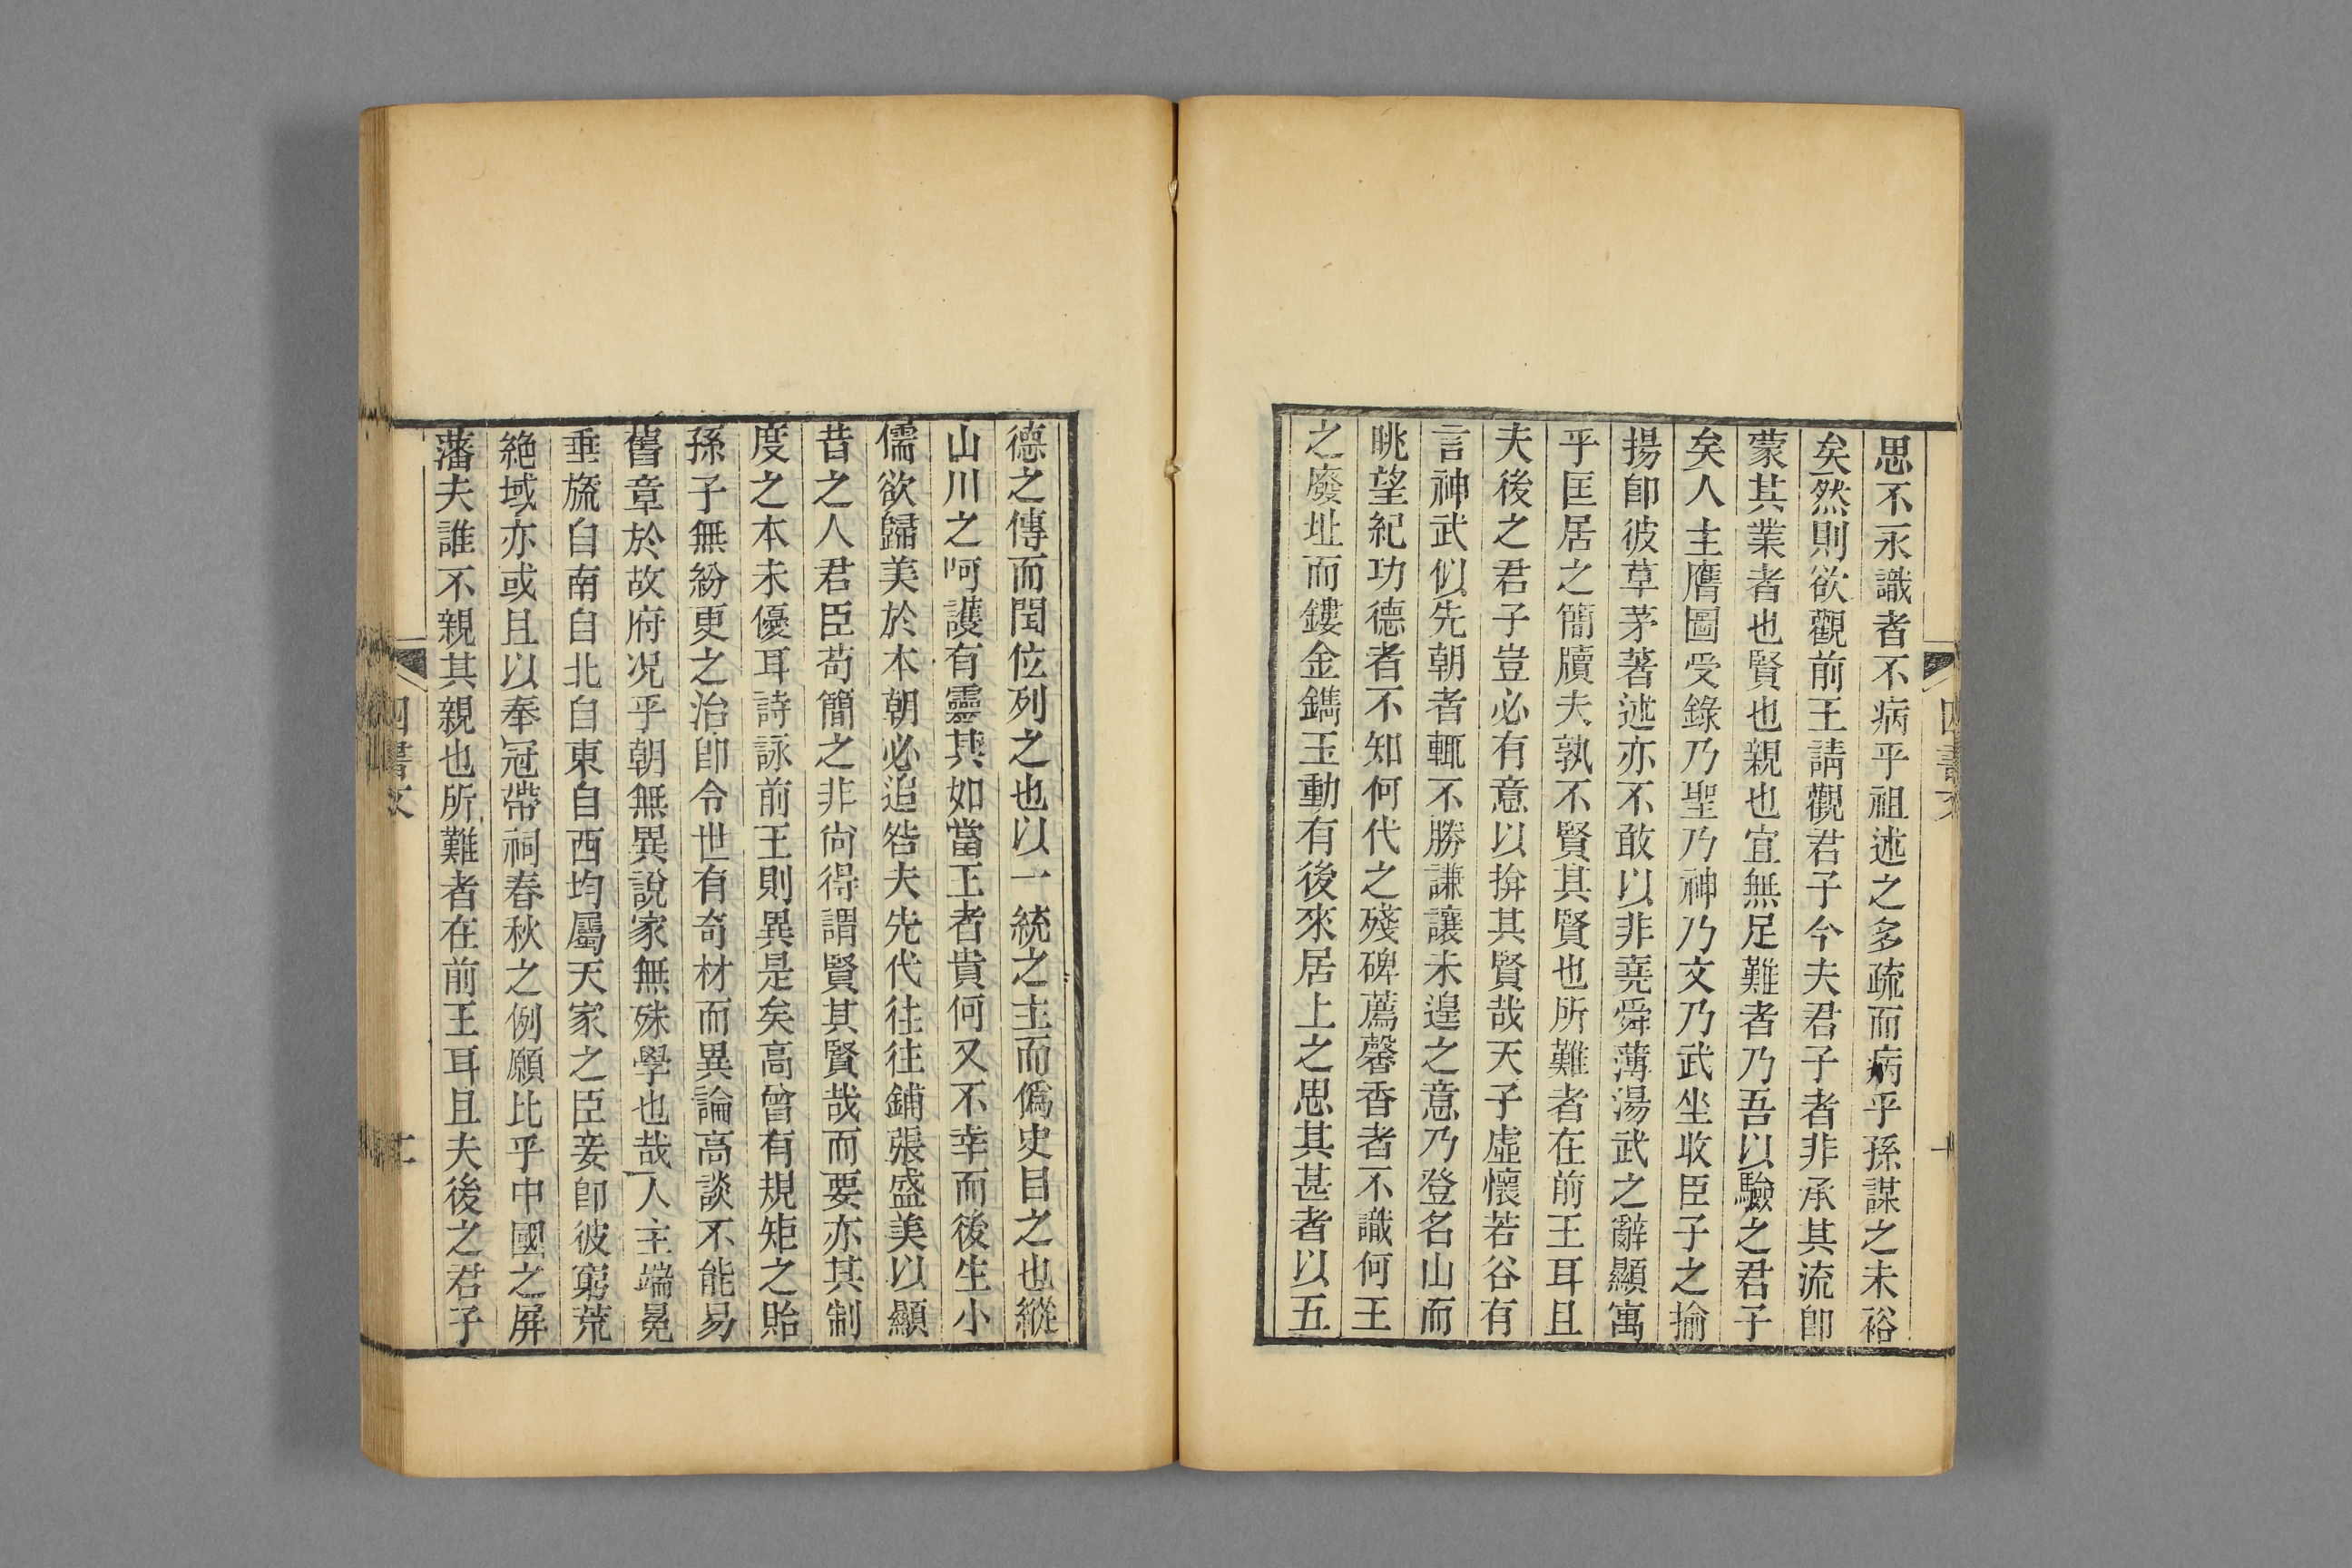 思不永識者不病乎祖述之多疏而病乎孫謀之未裕
矣然則欲觀前王請觀君子今夫君子者非承其流卽
蒙其業者也賢也親也宜無足難者乃吾以驗之君子
矣人主膺圖受錄乃聖乃神乃文乃武坐收臣子之揄
揚卽彼草茅著述亦不敢以非堯舜薄湯武之辭顯寓
乎匡居之簡牘夫孰不賢其賢也所難者在前王耳且
夫後之君子豈必有意以揜其賢哉天子虛懷若谷有
言神武似先朝者輒不勝謙讓未遑之意乃登名山而
眺望紀功德者不知何代之殘碑薦馨香者不識何王
之廢址而鏤金鐫玉動有後來居上之思其甚者以五
德之傳而閏位列之也以一統之主而僞史目之也縱
山川之呵護有靈其如當王者貴何又不幸而後生小
儒欲歸美於本朝必追咎夫先代往往鋪張盛美以顯
昔之人君臣苟簡之非尙得謂賢其賢哉而要亦其制
度之本未優耳詩詠前王則異是矣高曾有規矩之貽
孫子無紛更之治卽令世有奇材而異論高談不能易
舊章於故府况乎朝無異說家無殊學也哉人主端冕
垂旒自南自北自東自西均屬天家之臣妾卽彼窮荒
絶域亦或且以奉冠帶祠春秋之例願比乎中國之屏
藩夫誰不親其親也所難者在前王耳且夫後之君子
四書文